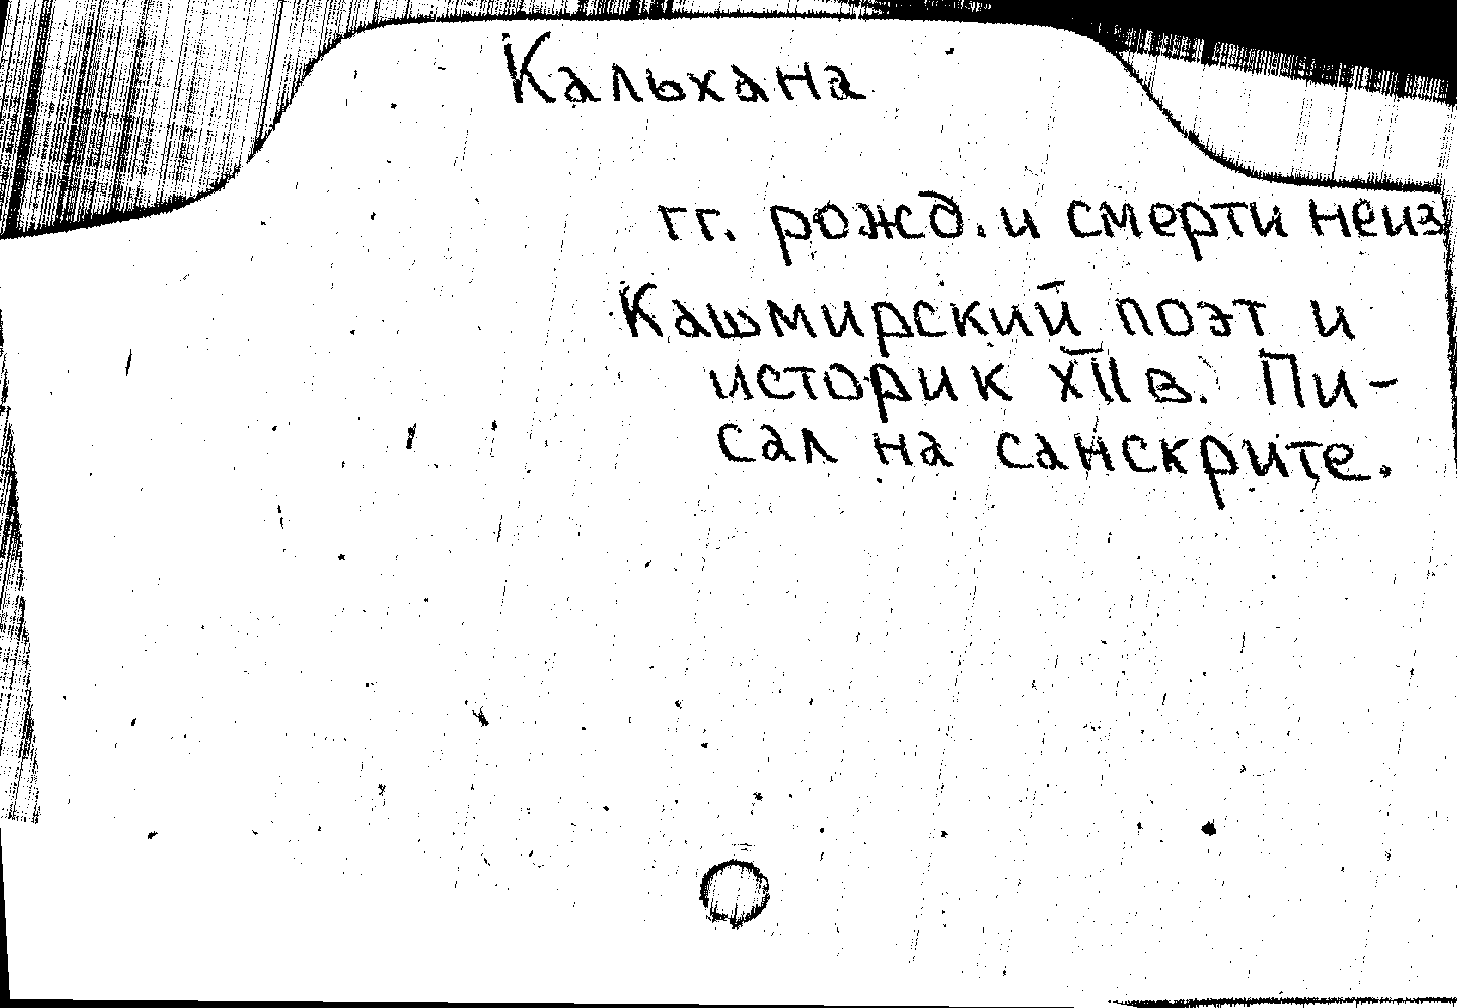 Кальхана
гг. рожд. и смерти неиз
Кашмирский поэт и
историк XII в. Пи-
сал на санскрите.